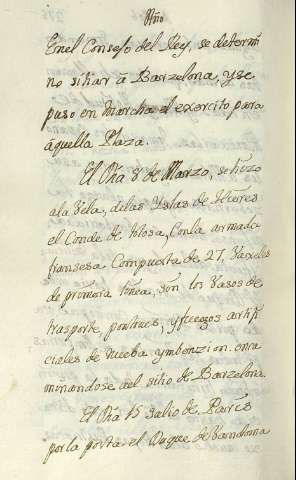 Año
En el Consejo del Rey, se determi
no sitiar à Barzelona, y se
puso en marcha el exercito para
àquella Plaza.
El Dia 8 de Marzo, se hizo
ala Vela, delas Yslas de Hieres
el Conde de tolosa, Conla armada
fransesa Compuesta de 27, Vaxeles
de primera linea, con los Vasos de
trasporte, pontones, y fuegos artifi
ciales de nueba ymbenzion enca
minandose al sitio de Barzelona.
El Dia 15 salio de Parrs
por la posta el Duque de Vandoma